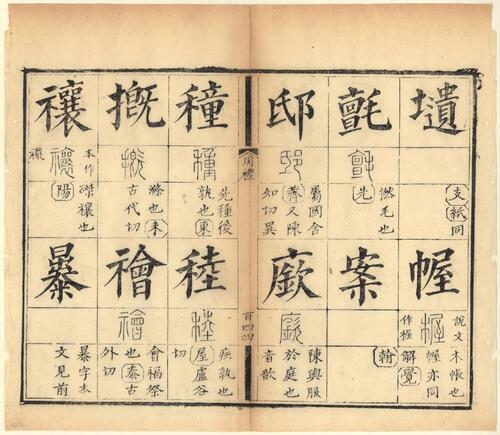 壝
支紙同
幄
說文木帳也
楃
幄亦同
作楃
氈
氈
撚毛也
先
案
翰
邸
邸
屬國舍
薺又陳
知切異
廞
廞
陳輿服
於庭也
音歆
周禮
百四四
穜
穜
先種後
孰也東
稑
稑
疾孰也
屋盧谷
切
摡
摡
滌也未
古代切
禬
禬
會福祭
也泰古
外切
禳
本作磔禳也
禳
陽
暴
暴字本
文見前